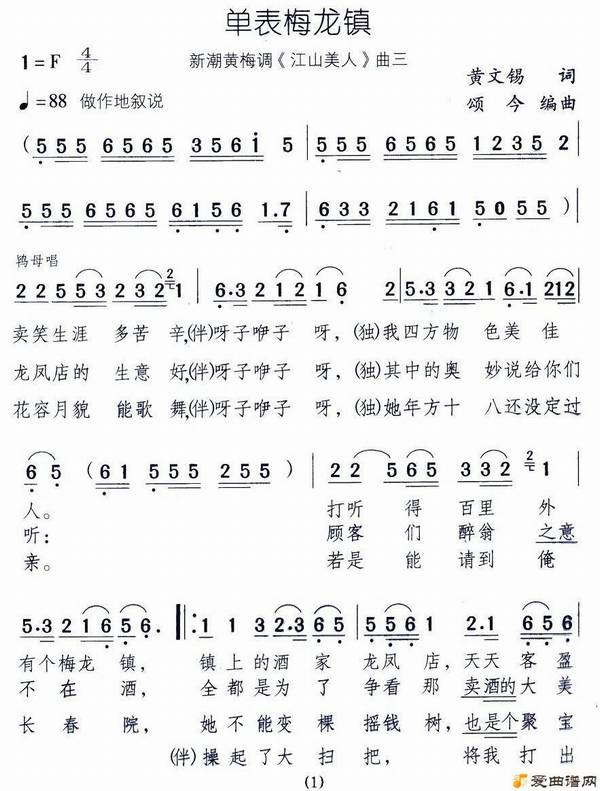 单表梅龙镇
1=F 4/4
新潮黄梅调《江山美人》曲三
黄文锡 词
♩=88 做作地叙说
颂今 编曲
(555 6565 3561 5 | 555 6565 1235 2 |
555 6565 6156 1.7 | 633 2161 5055)|
鸨母唱
22553 232 2 1 | 6.3 212 1 6 | 2 5.3 32 6.1 212
卖笑生涯 多苦 辛,(伴)呀子咿子 呀,(独)我四方物 色美佳
龙凤店的 生意 好,(伴)呀子咿子 呀,(独)其中的奥 妙说给你们
花容月貌 能歌 舞,(伴)呀子咿子 呀,(独)她年方十 八还没定过
6 5 (61 555 255) | 22 565 332 2 1 |
人。 打听 得 百里 外
听: 顾客 们 醉翁 之意
亲。 若是 能 请到 俺
5.3 216 56. ‖: 11 32.365 | 5653 2.1 656 |
有个梅龙 镇, 镇上的酒家 龙凤店,天天客盈
不在 酒, 全都是为了 争看那 卖酒的大美
长春 院, 她不能变棵 摇钱树,也是个聚宝
(伴)操起了大 扫把, 将我打出
(1)
爱曲谱网